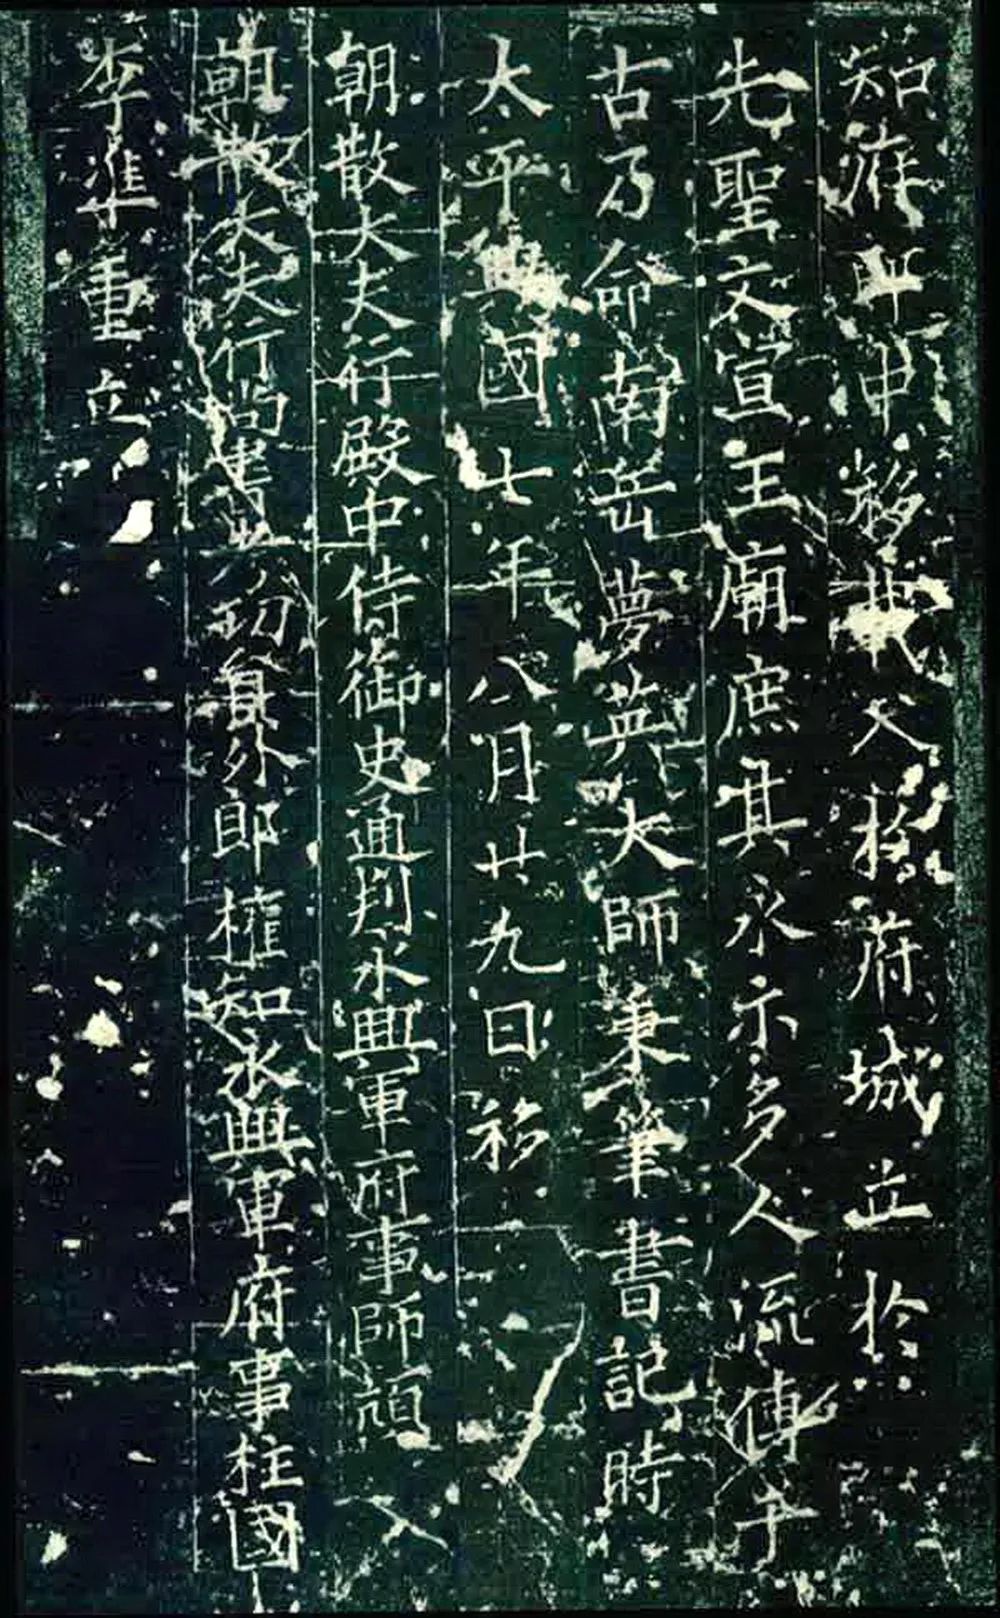 知府 申移 入於府城立於
先聖文宣王廟庶其永示多人流傳千
古乃命南岳夢英大師秉筆書記時
太平興國七年八月廿九日移
朝散大夫行殿中侍御史通判永興軍府事師頏
朝散大夫行尚書 部員外郎權知永興軍府事柱國
李準重立